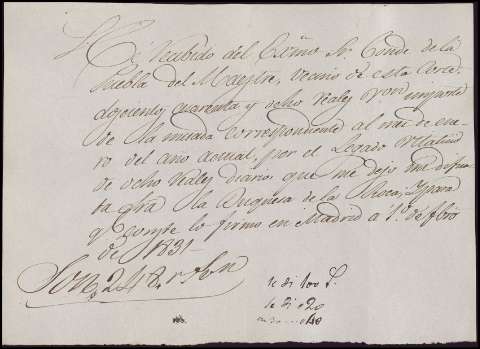 He recibido del Exmo Sr. Conde de la
Puebla del Maestre, vecino de esta Corte,
doscientos quarenta y ocho reales vn importe
de la mesada correspondiente al mes de ene-
ro del año actual, por el Legado vitalicio
de ocho reales diarios que me dejo mi difun
ta ama la Duquesa de la Roca, y para
q. conste lo firmo en Madrid a 1.º de Fbro
de 1831
Son 248 r
le di 100
le di 020